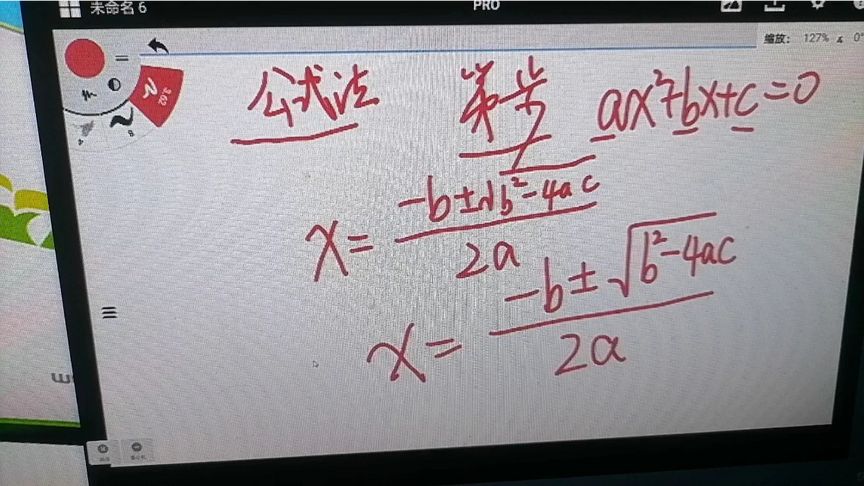 未命名 6
PRO
缩放: 127% ∡ 0°
2.62
公式法 第一步 ax²+bx+c=0
x=\frac{-b±√b²-4ac}{2a}
x=\frac{-b±\sqrt{b²-4ac}}{2a}